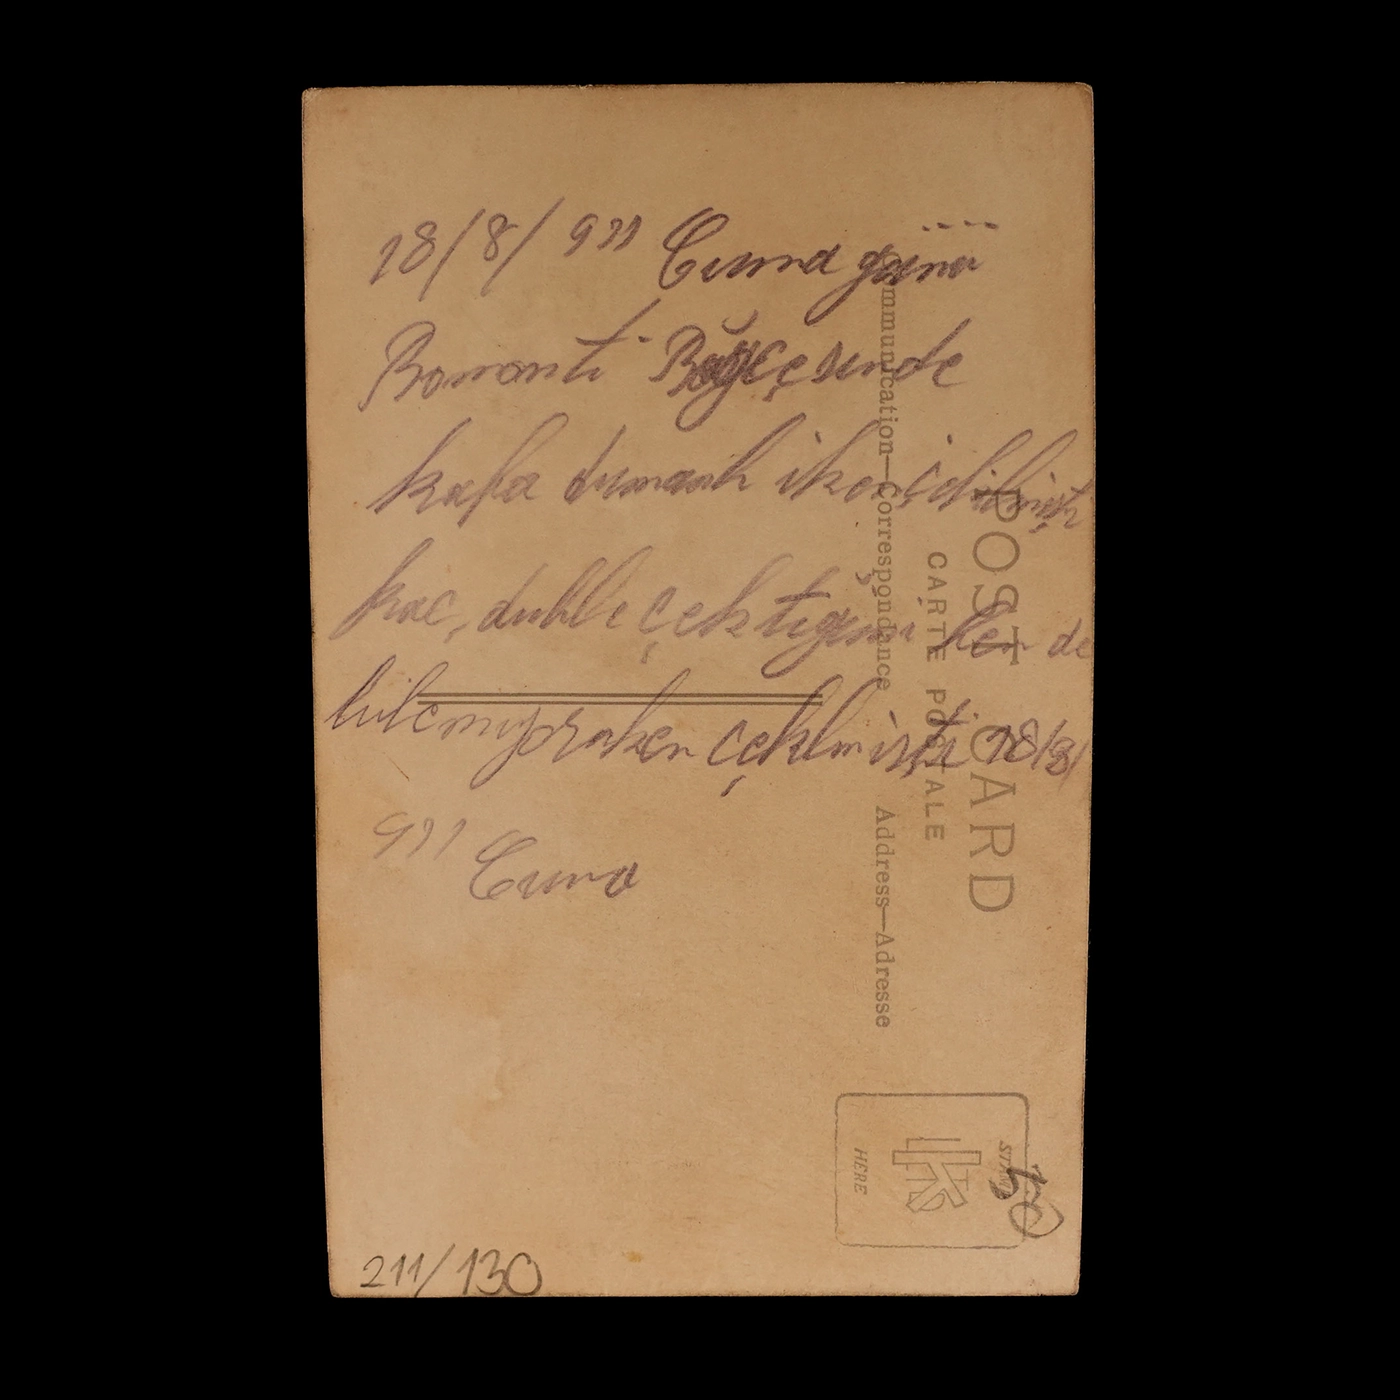 18/8/933 Cuma günü
Bomonti Bağçesinde
kafa dumanlı iken çekilmişti
kac, duble çektiğimi ben de
bilemiyorken çekilmişti 18/8/
933 Cuma
POST CARD
CARTE POSTALE
Communication—Correspondance
Address—Adresse
STAMP
HERE
50
211/130